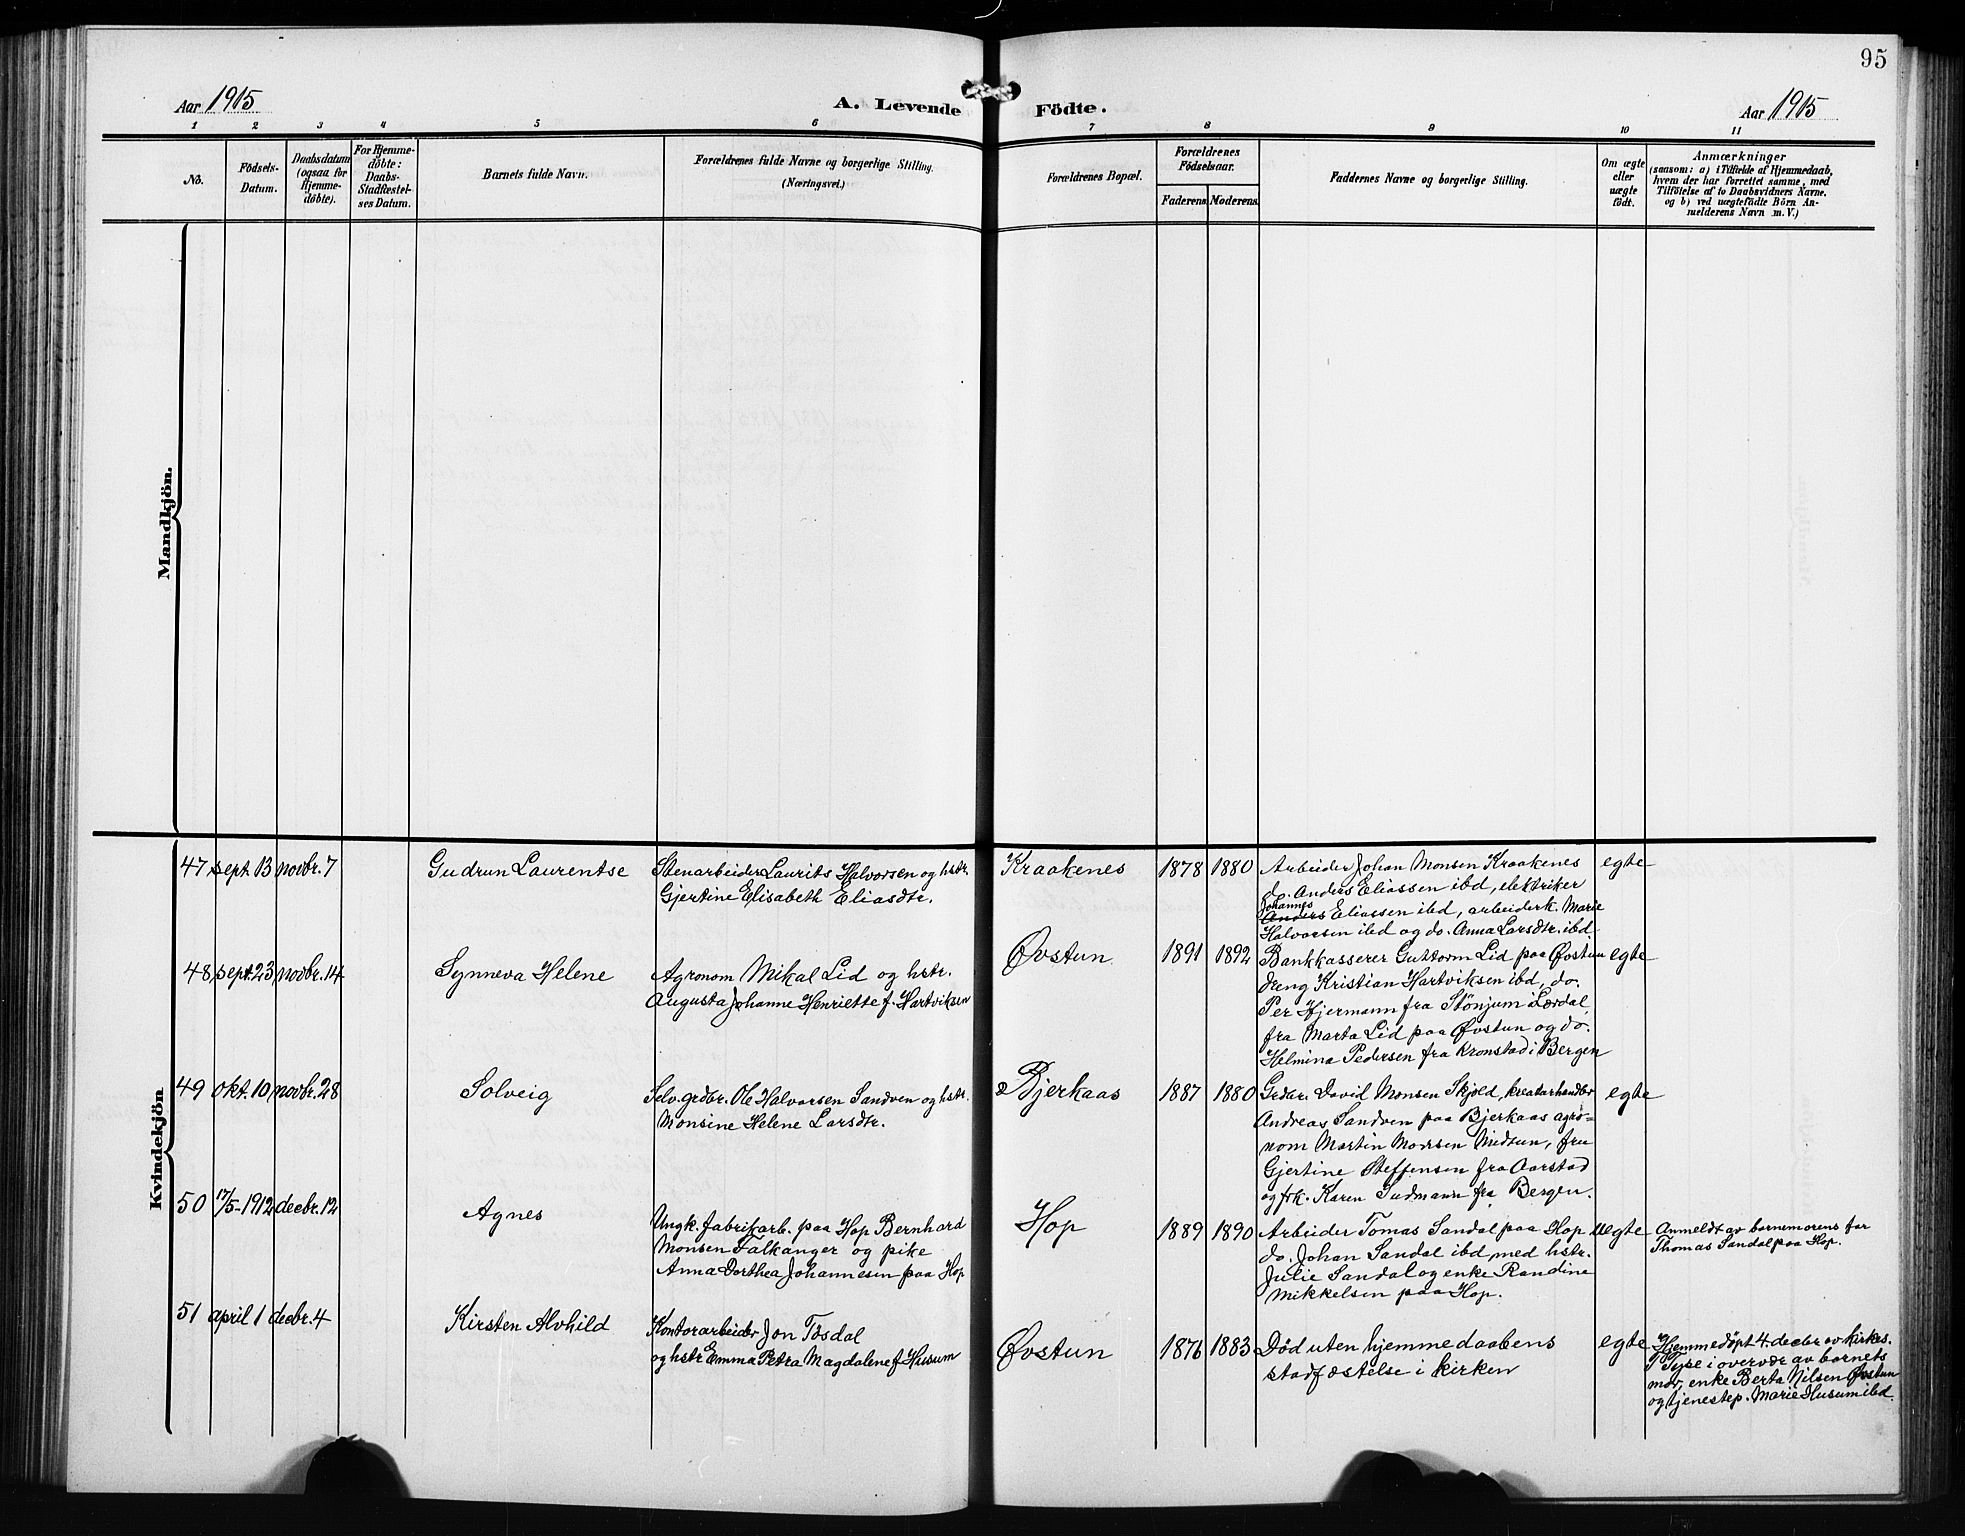 95
Aar 1915
A. Levende Födte.
Aar 1915
1 2 3 4 5 6 7 8 9 10 11
No.
Födsels-
Datum.
Daabsdatum
(ogsaa for
Hjemme-
døbte).
For Hjemme-
døbte:
Daabs-
Stadfæstel-
ses Datum.
Barnets fulde Navn.
Forældrenes fulde Navne og borgerlige Stilling.
(Næringsvei.)
Forældrenes Bopæl.
Forældrenes
Födselsaar.
Faderens Moderens
Faddernes Navne og borgerlige Stilling.
Om ægte
eller
uægte
født.
Anmærkninger
(saasom: a) i Tilfælde af Hjemmedaab,
hvem der har forrettet samme, med
Tilföielse af to Daabsvidners Navne.
og b) ved uægtefødte Börn An-
melderens Navn m. V.)
Mandkjön.
Kvindekjön
47 sept. 13 novbr. 7
Gudrun Laurentse
Stenarbeider Laurits Halvorsen og hstr.
Gjertine Elisabeth Eliasdtr.
Kraakenes
1878 1880
Arbeider Johan Monsen Kraakenes
do. Anders Eliassen ibd, elektriker
Johannes
Anders Eliassen ibd, arbeiderk. Marie
Halvorsen ibd og do. Anna Larsdtr. ibd
egte
48 sept. 23 novbr. 14
Synneva Helene
Agronom Mikal Lid og hstr.
Augusta Johanne Henriette f. Hartviksen
Øvstun
1891 1892
Bankkasserer Guttorm Lid paa Øvstun
dreng Kristian Hartviksen ibd, do.
Per Hjermann fra Stønjum i Lærdal,
fra Marta Lid paa Øvstun og do.
Helmina Pedersen fra Kronstad i Bergen
egte
49 okt. 10 novbr. 28
Solveig
Selv. grdbr. Ole Halvorsen Sandven og hstr.
Monsine Helene Larsdtr.
Bjerkaas
1887 1880
Grdbr. David Monsen Skjold, kreaturhandler
Andreas Sandven paa Bjerkaas agro=
nom Martin Monsen Midtun, fru
Gjertine Steffensen fra Aarstad
og frk. Karen Gudmann fra Bergen.
egte
50 17/5-1912 decbr. 12
Agnes
Ungk. fabrikarb. paa Hop Bernhard
Monsen Falkanger og pike
Anna Dorthea Johannesen paa Hop
Hop
1889 1890
Arbeider Tomas Sandal paa Hop
do. Johan Sandal ibd med hstr.
Julie Sandal og enke Randine
Mikkelsen paa Hop.
uegte
Anmeldt av barnemorens far
Thomas Sandal paa Hop.
51 april 1 decbr. 4
Kirsten Alvhild
Kontorarbeider Jon Tøsdal
og hstr Emma Petra Magdalene f. Husum
Øvstun
1876 1883
Død uten hjemmedaabens
stadfæstelse i kirken
egte
Hjemmedøpt 4. decbr av kirkes.
Tyse i overvær av barnets
mor, enke Berta Nilsen Øvstun
og tjenestep. Marie Husum ibd.